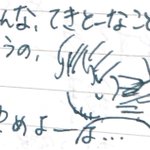 んな、てきとーなこと
うの,
ゆめよーは...